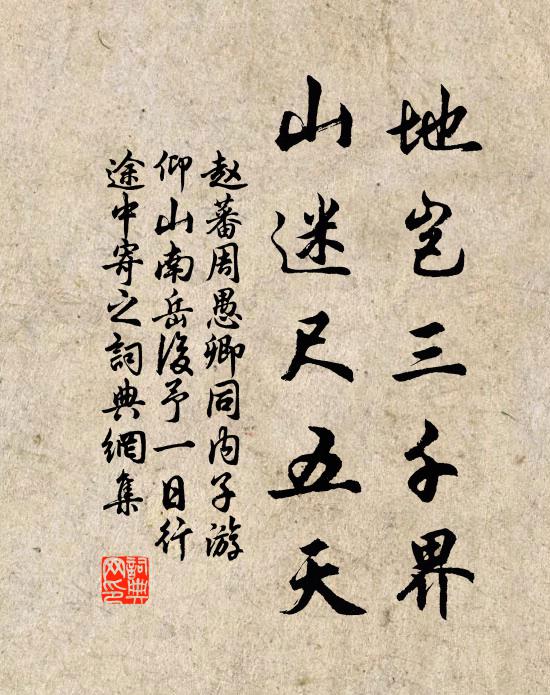 地岂三千界
山迷尺五天
赵蕃周愚卿同内子游
仰山南岳後予一日行
途中寄之詞典網集
詞典
网印